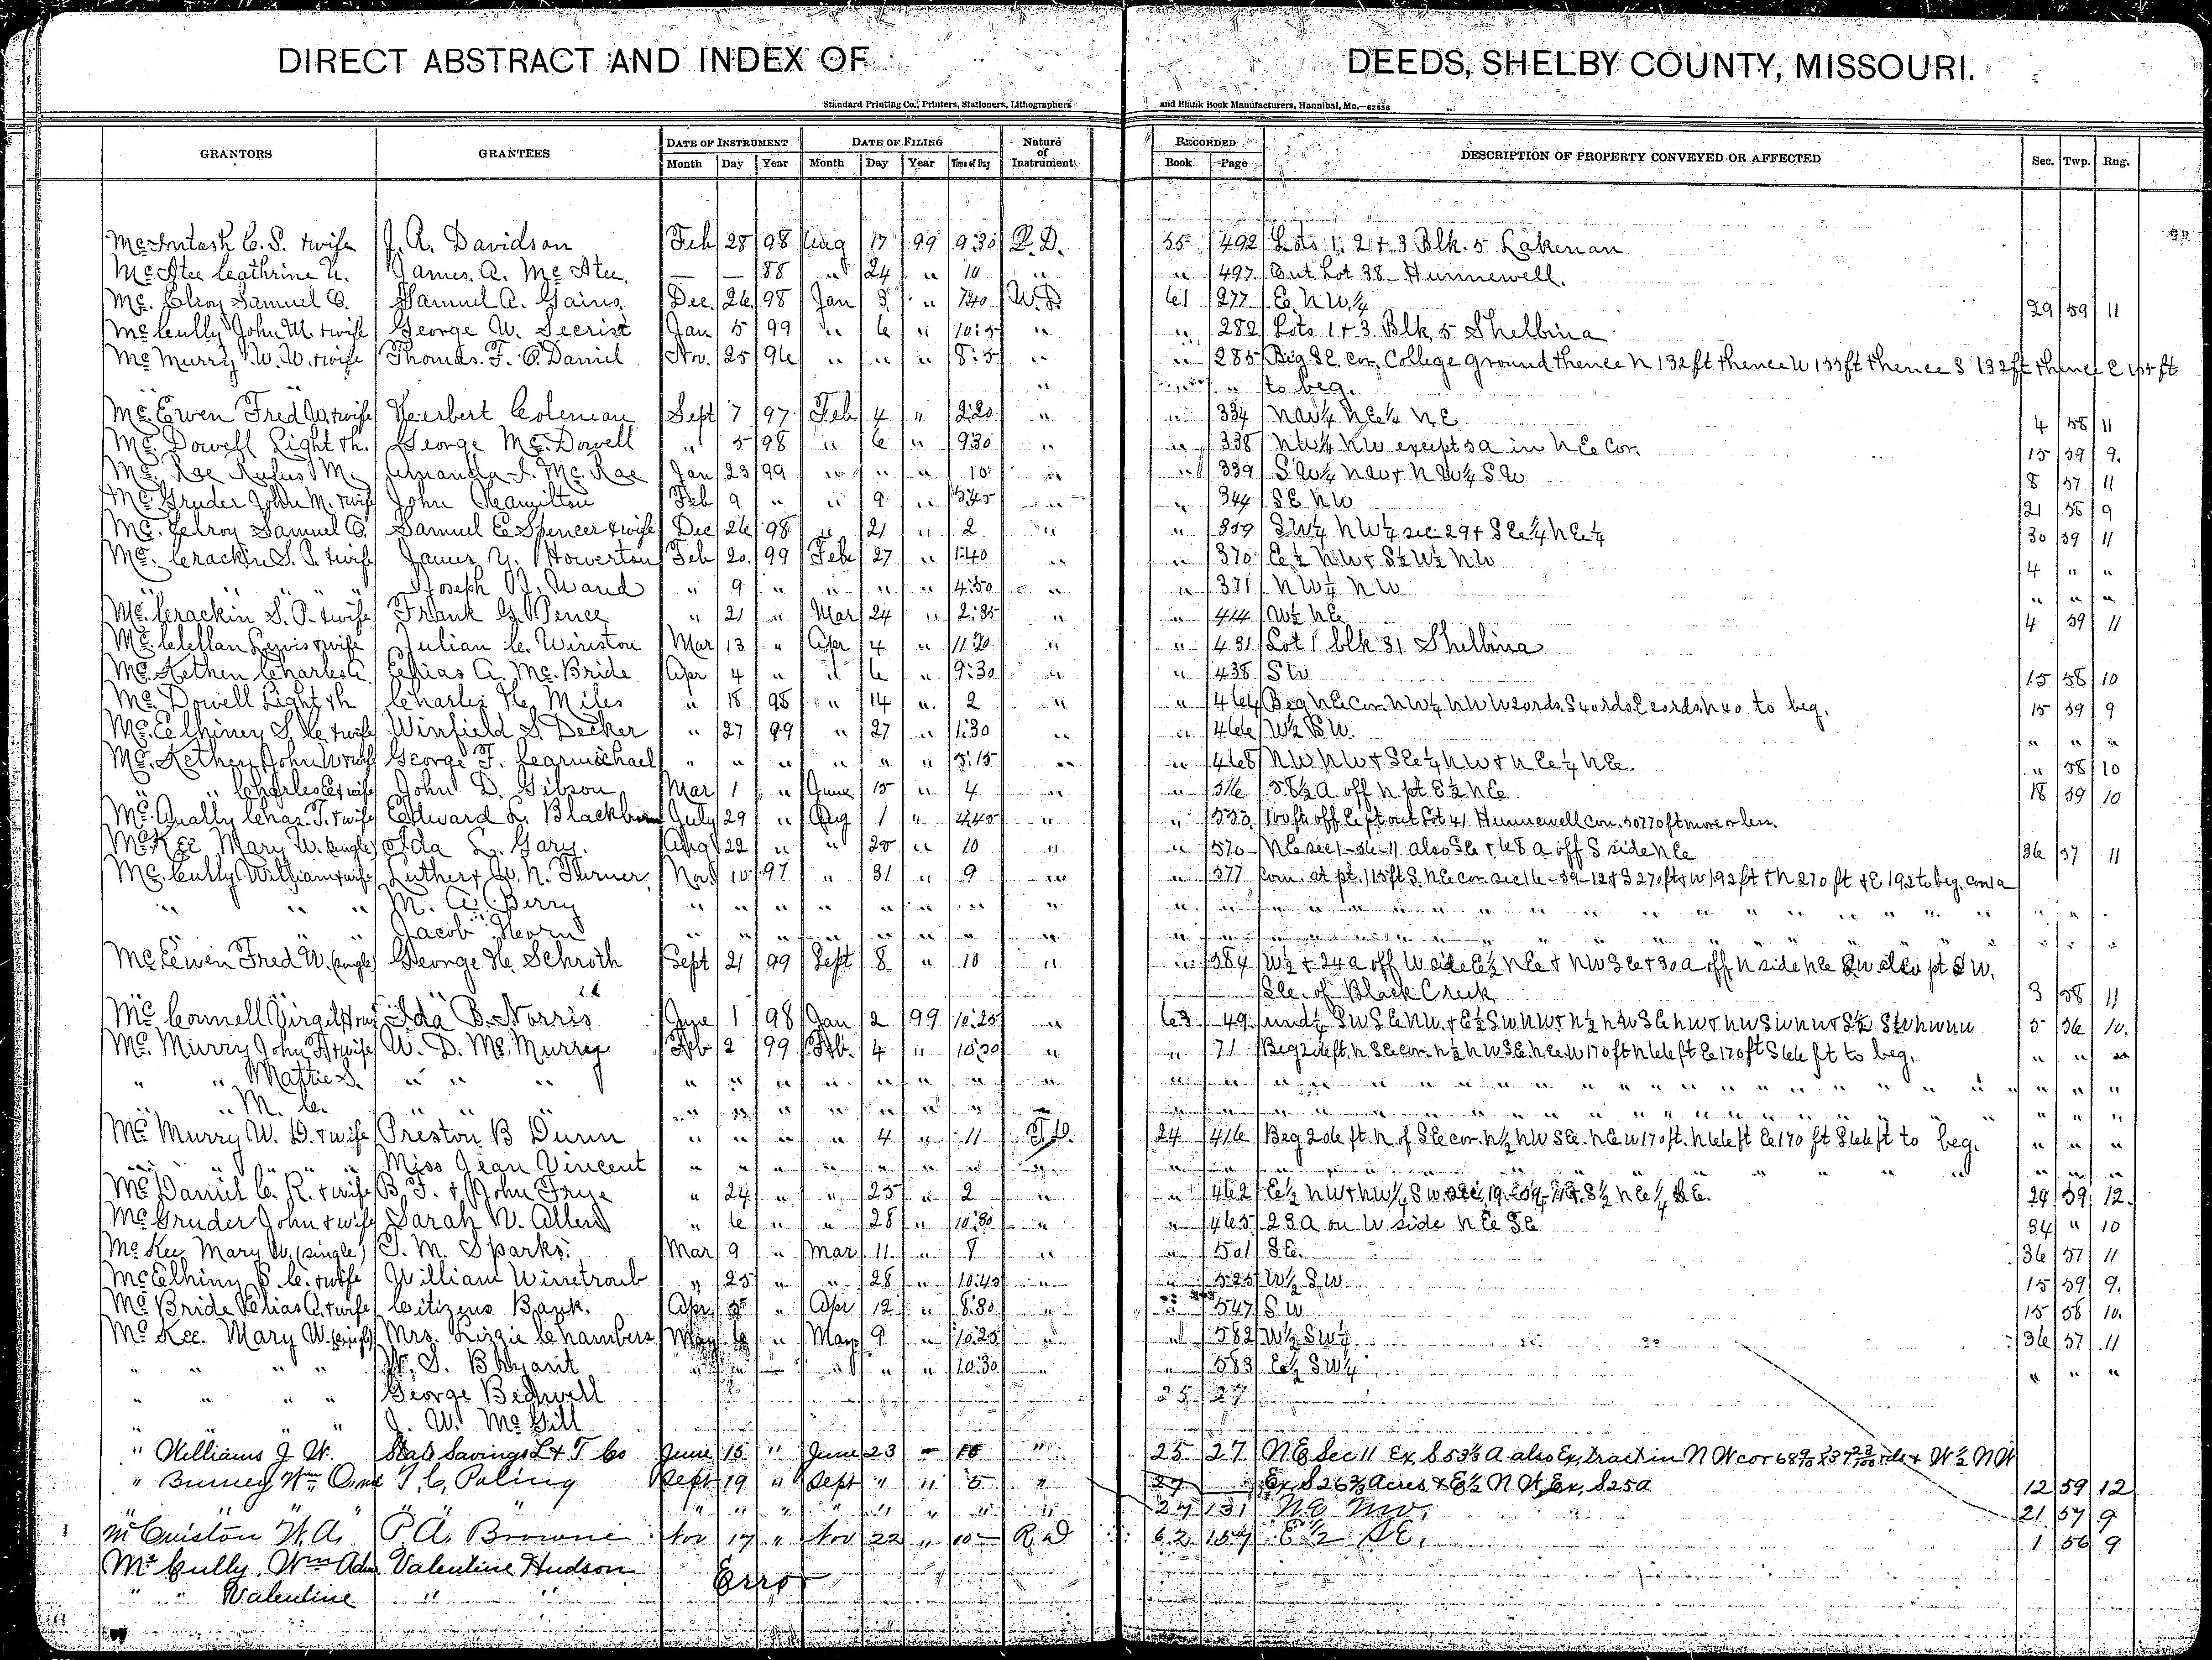 DIRECT ABSTRACT AND INDEX OF DEEDS, SHELBY COUNTY, MISSOURI.
Standard Printing Co., Printers, Stationers, Lithographers and Blank Book Manufacturers, Hannibal, Mo.
GRANTORS GRANTEES DATE OF INSTRUMENT DATE OF FILING Nature of Instrument RECORDED DESCRIPTION OF PROPERTY CONVEYED OR AFFECTED Sec. Twp. Rng.
Month Day Year Month Day Year Time of Day Book Page
McIntosh C. S. & wife J. A. Davidson Feb 28 98 Aug 17 99 9:30 Q. D. 55 492 Lots 1, 2 & 3 Blk. 5 Lakenan
McAtee Cathrine James A. McAtee — — 88 " 24 " 10 " " 497 Out Lot 38 Hunnewell.
Mc Elroy Samuel C. Samuel A. Gains Dec. 26 98 Jan " 7:40 W. D 61 277 E. NW.¼ 29 59 11
McCully John M. & wife George W. Secrist Jan 5 99 " 6 " " " 282 Lots 1 & 3 Blk 5 Shelbina
Mc Murry W. W. & wife Thomas F. O. Daniel Nov. 25 96 " " " " " 285 Beg SE. cor. College ground thence N 132 ft thence W 155 ft thence S 132 ft thence E 155 ft
" " to beg.
Mc Ewen Fred W. & wife Herbert Coleman Sept 7 97 Feb 4 " 2:20 " " 334 4 58 11
Mc Dowell Light th. George Mc Dowell " 5 98 " 6 " 9:30 " " 338 NW¼ NW except 3 a in NE Cor. 15 59 9.
Mc Rae Rufus M. Amanda J. Mc Rae Jan 23 99 " " " 10 " " 339 8 57 11
Mc Gruder John M. & wife John Hamilton Feb 9 " " 9 " 3:45 " " 344 SE NW 21 58 9
Mc Elroy Samuel C. Samuel E Spencer & wife Dec 26 98 " 21 " 2 " " 359 SW¼ NW¼ sec 29 & SE¼ NE¼ 30 59 11
Mc Crackin S. P. & wife James Y. Howerton Feb 20 99 Feb 27 " 1:40 " " 370 E½ NW & S½ W½ NW 4 " "
" " " Joseph H. Wand " 9 " " " " 4:50 " " 371 NW¼ NW " " "
Mc Crackin S. P. & wife Frank G. Pence " 21 " Mar 24 " 2:35 " " 414 W½ NE 4 59 11
Mc Clellan Lewis & wife Julian C. Winston Mar 13 " Apr 4 " 11:20 " " 431 Lot 1 blk 31 Shelbina
Mc Kethen Charles C. Elias A. Mc Bride Apr 4 " " 6 " 9:30 " " 438 SW 15 58 10
Mc Dowell Light th Charles H. Miles " 18 98 " 14 " 2 " " 464 Beg NE cor NW¼ NW W 20 rds. S 40 rds E 20 rds. N 40 to beg. 15 59 9
Mc Elhiney S. C. & wife Winfield S. Decker " 27 99 " 27 " 1:30 " " 466 W½ SW. " " "
Mc Kethen John W & wife George F. Carmichael " " " " " " 5:15 " " 468 NW NW & SE¼ NW & NE¼ NE. " 58 10
" Charles C & wife John D. Gibson Mar 1 " June 15 " 4 " " 516 38½ a off N pt E½ NE 18 59 10
Mc Qually Chas. T. & wife Edward L. Blackburn July 29 " Aug 1 " 4:45 " " 533 100 ft off E pt out Lot 41 Hunnewell con. 50770 ft more or less.
McKee Mary W. (single) Ida L. Gary. Aug 22 " " 25 " 10 " " 570 NE sec 1-56-11 also SE & 48 a off S side NE 36 57 11
Mc Cully William & wife Luther & W. N. Turner, Nov 10 97 " 31 " 9 " " 577 com. at pt. 115 ft S. NE cor sec 16-59-12 & S 270 ft & W 192 ft & N 270 ft & E 192 to beg. con 1 a
" " " M. A. Berry " " " " " " " " " " "
" " " Jacob Hearn " " " " " " " " " " "
McEwen Fred W. (single) George H. Schroth Sept 21 99 Sept 8 " 10 " " 584 W½ & 24 a off W side E½ NE & NW SE & 30 a off N side NE SW also pt SW.
SE. of Black Creek 3 58 11
Mc Connell Virgil Ida B. Norris June 1 98 Jan 2 99 10:25 " 63 49 5 56 10.
Mc Murry John & wife W. D. Mc Murry Feb 2 99 Feb. 4 " 10:30 " " 71 Beg 206 ft. N SE cor. N½ NW SE. NE W 170 ft N 66 ft E 170 ft S 66 ft to beg. " " "
" " Mattie S. " " " " " " " " " " " " "
" " M. C. " " " " " " " " " " " " "
Mc Murry W. D. & wife Preston B Dunn " " " " 4 " 11 T. D. 24 416 Beg 206 ft. N of SE cor. N½ NW SE. NE W 170 ft. N 66 ft E 170 ft S 66 ft to beg. " " "
" " " Miss Jean Vincent " " " " " " " " " " " " "
Mc Daniel C. R. & wife B. F. & John Frye " 24 " " 25 " 2 " " 462 E½ NW & NW¼ SW sec. 19-59-11 & S½ NE¼ SE. 24 59 12.
Mc Gruder John & wife Sarah N. Allen " 6 " " 28 " 10:30 " " 465 23 a on W side NE SE 34 " 10
Mc Kee Mary W. (single) T. M. Sparks. Mar 9 " Mar 11 " 8 " " 501 SE. 36 57 11
McElhiny S. C. & wife William Winetroub " 25 " " 28 " 10:40 " " 525 W½ SW 15 59 9.
Mc Bride Elias A. & wife Citizens Bank. Apr. " Apr 12 " 8:30 " " 547 SW 15 58 10.
Mc Kee. Mary W. (single) Mrs. Lizzie Chambers May 6 " May 9 " 10:25 " " 582 W½ SW¼ 36 57 11
" " " " W. S. Bryant " " " " " " 10:30 " " 583 E½ SW¼ " " "
" " " " George Bedwell 25 27
" " " " J. W. McGill
" Williams J W. State Savings L & T Co June 15 " June 23 – 10 " 25 27 NE Sec 11 Ex S 53½ A also Ex, tract in N W cor & W½ NW
" Burney Wm T. C, Poling Sept 19 " Sept " 11 5 " 27 Ex. S 26⅔ Acres & E½ N W, Ex, S 25 a 12 59 12
" " " " " " " " " 27 131 21 57 9
McQuiston W. A. P. A. Browne Nov 17 " Nov 22 " 10 – R D 62 157 E ½ SE. 1 56 9
Mc Cully. Wm Adm Valentine Hudson Error
" " Valentine " "